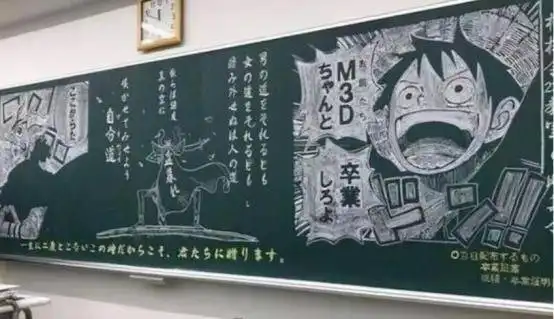 お前たち
M3D
ちゃんと
卒業
しろよ
ドン!!
男の道をそれるとも
女の道をそれるとも
踏み外せぬは人の道
散らば諸友
真の空に
咲かせてみせよう
自分道
一生に二度とこないこの時だからこそ、君たちに贈ります。
○当日配布するもの
卒業証書
成績・卒業証明